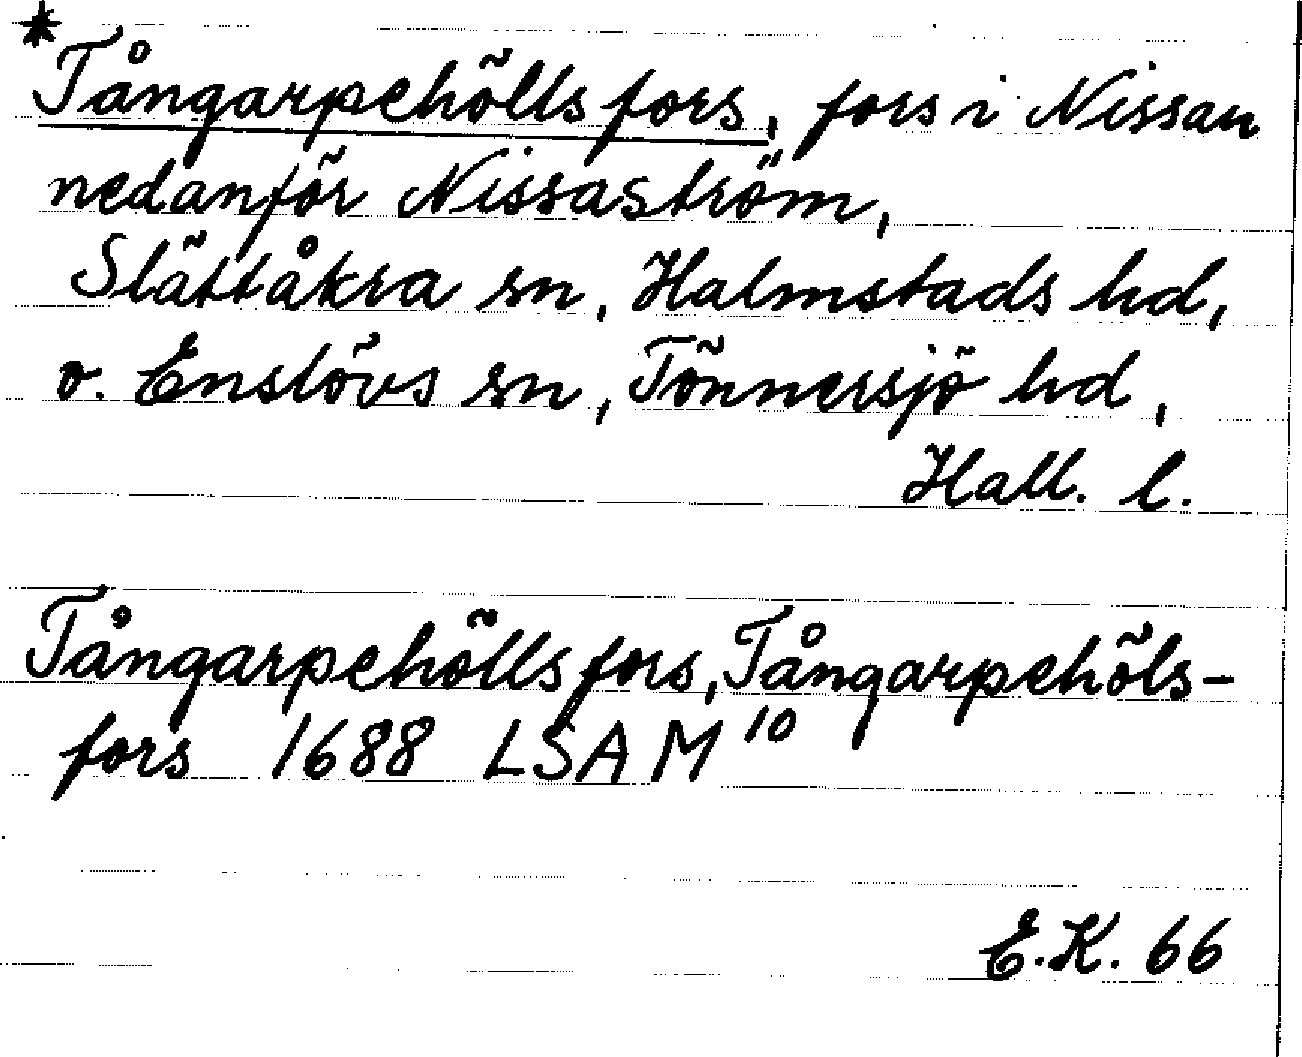 *Tångarpehölls fors, fors i Nissan
nedanför Nissaström,
Slättåkra sn, Halmstads hd,
o. Enslövs sn, Tönnersjö hd,
Hall. l.
Tångarpehölls fors, Tångarpehöls-
fors 1688 LSA M 10
E.K. 66